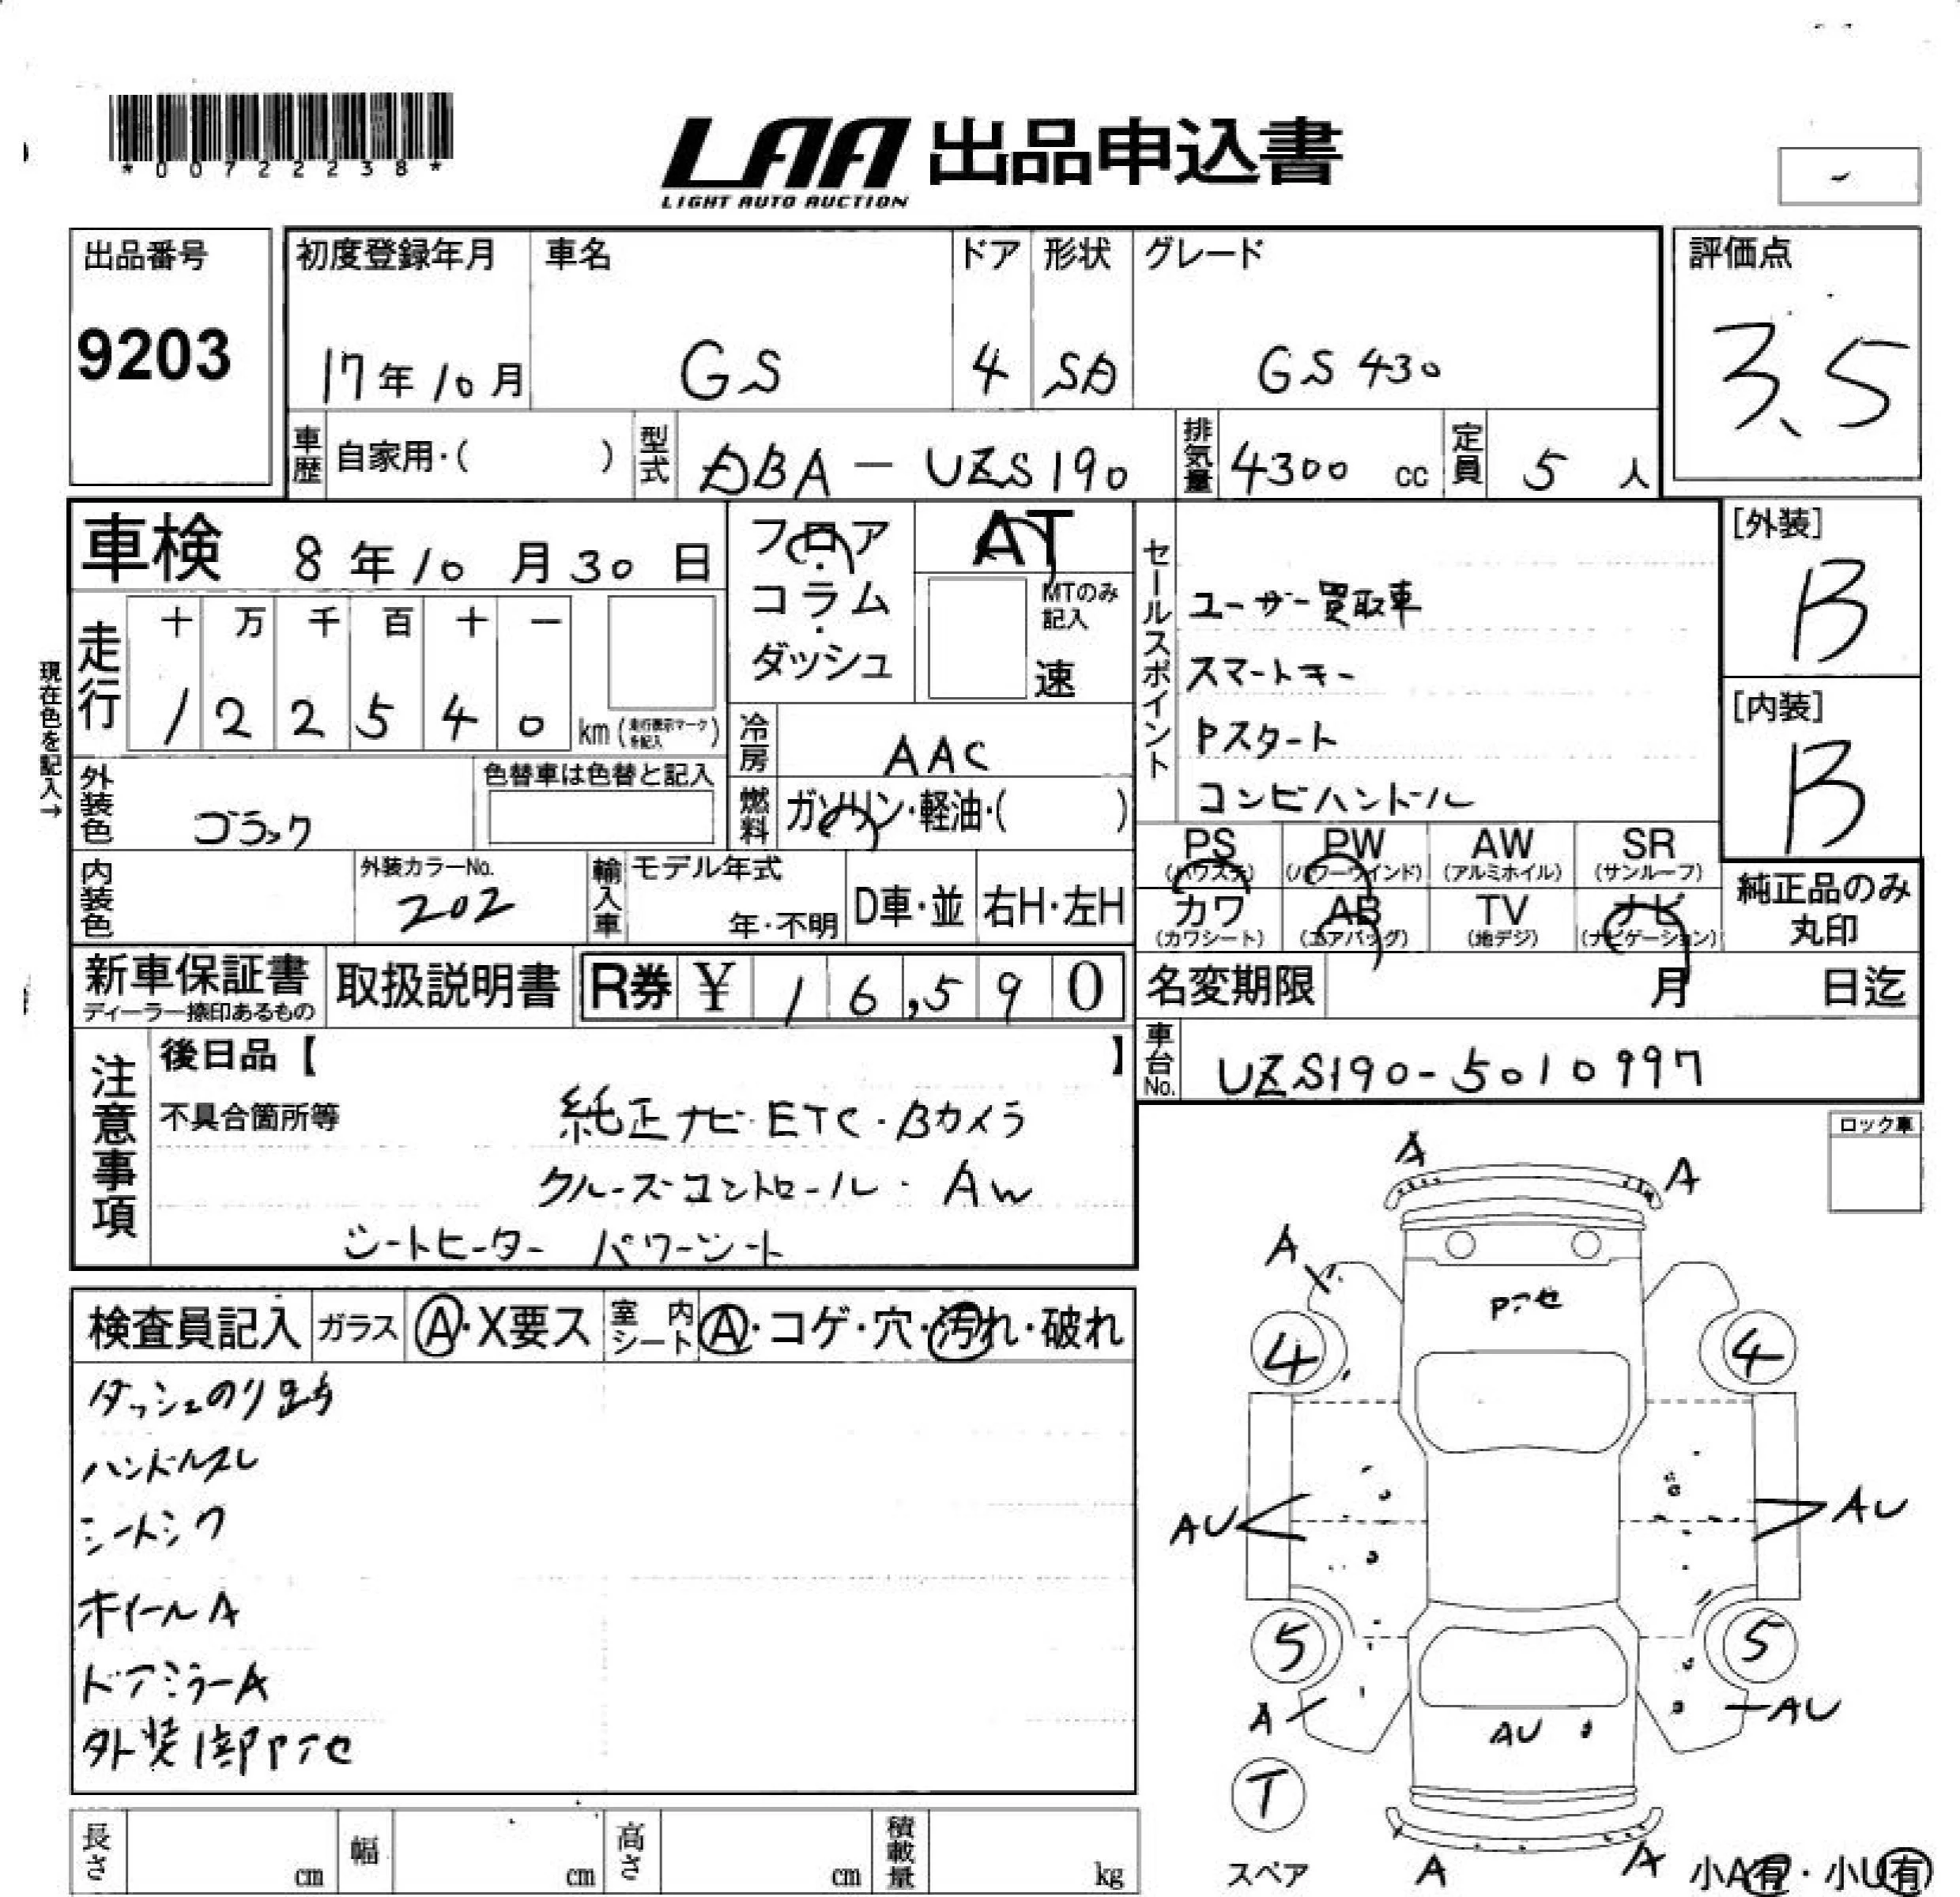 *00722238*
LAA 出品申込書
LIGHT AUTO AUCTION
出品番号
9203
初度登録年月 車名 ドア 形状 グレード
17年10月 GS 4 SD GS430
評価点
3.5
車歴 自家用・( ) 型式 DBA-UZS190 排気量 4300 cc 定員 5 人
車検 8年10月30日
フロア・コラム・ダッシュ
AT
MTのみ記入
速
セールスポイント
ユーザー買取車
スマートキー
Pスタート
コンビハンドル
[外装]
B
[内装]
B
現在色を記入→
走行 十 万 千 百 十 一
1 2 2 5 4 0 km (走行表示マークを記入)
冷房 AAC
外装色 ブラック 色替車は色替と記入
燃料 ガソリン・軽油・( )
PS (パワステ) PW (パワーウインド) AW (アルミホイル) SR (サンルーフ)
カワ (カワシート) AB (エアバッグ) TV (地デジ) ナビ (ナビゲーション)
純正品のみ丸印
内装色 外装カラーNo. 202 輸入車 モデル年式 年・不明 D車・並 右H・左H
新車保証書 ディーラー捺印あるもの 取扱説明書 R券 ¥ 16,590
名変期限 月 日迄
車台No. UZS190-5010997
注意事項
後日品【 】
不具合箇所等 純正ナビ・ETC・Bカメラ
クルーズコントロール・AW
シートヒーター パワーシート
ロック車
検査員記入 ガラス A・X要ス 室内シート A・コゲ・穴・汚れ・破れ
ダッシュのり跡
ハンドルスレ
シートシワ
ホイールA
ドアミラーA
外装1部Pアセ
A
A
A
Pアセ
4
4
AU
AU
5
5
A
AU
AU
T
スペア
A
A
小A有・小U有
長さ cm 幅 cm 高さ cm 積載量 kg